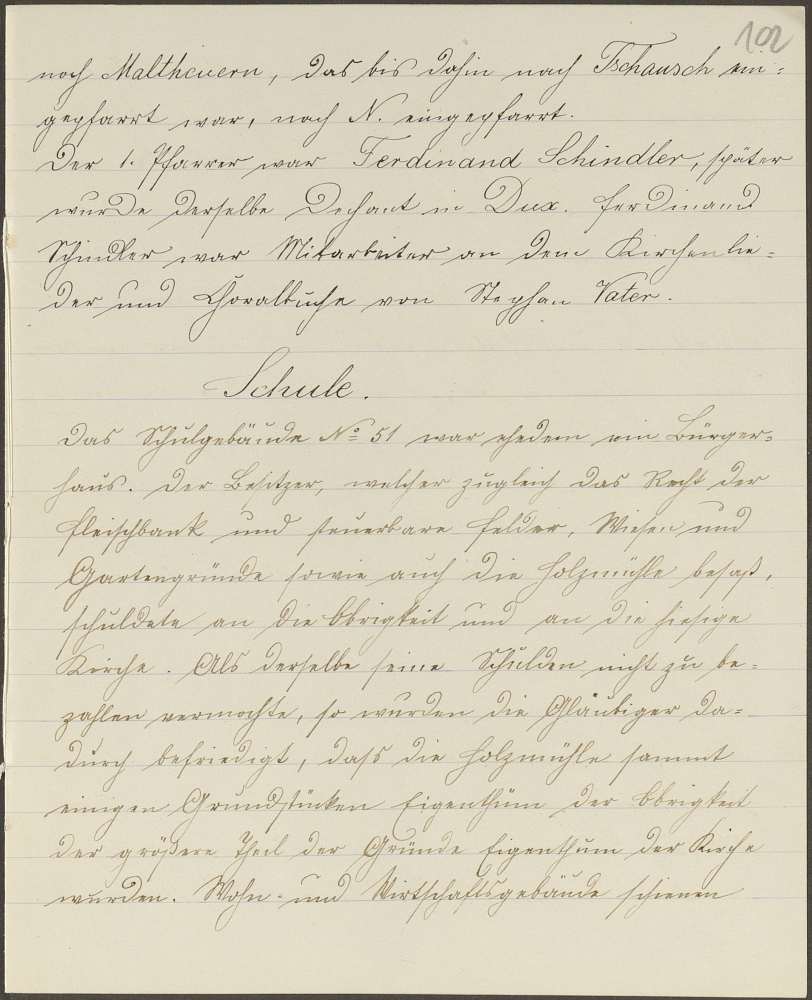 102
noch Maltheuern, das bis dahin nach Tschausch ein-
gepfarrt war, nach N. eingepfarrt.
Der 1. Pfarrer war Ferdinand Schindler, später
wurde derselbe Dechant in Dux. Ferdinand
Schindler war Mitarbeiter an dem Kirchenlie-
der und Choralbuche von Stephan Vater.
Schule.
Das Schulgebäude No 51 war ehedem ein Bürger-
haus. Der Besitzer, welcher zugleich das Recht der
Fleischbank und steuerbare Felder, Wiesen und
Gartengründe sowie auch die Holzmühle besaß,
schuldete an die Obrigkeit und an die hiesige
Kirche. Als derselbe seine Schulden nicht zu be-
zahlen vermochte, so wurden die Gläubiger da-
durch befriedigt, dass die Holzmühle sammt
einigen Grundstücken Eigenthum der Obrigkeit
der größere Theil der Gründe Eigenthum der Kirche
wurden. Wohn- und Wirtschaftsgebäude schienen